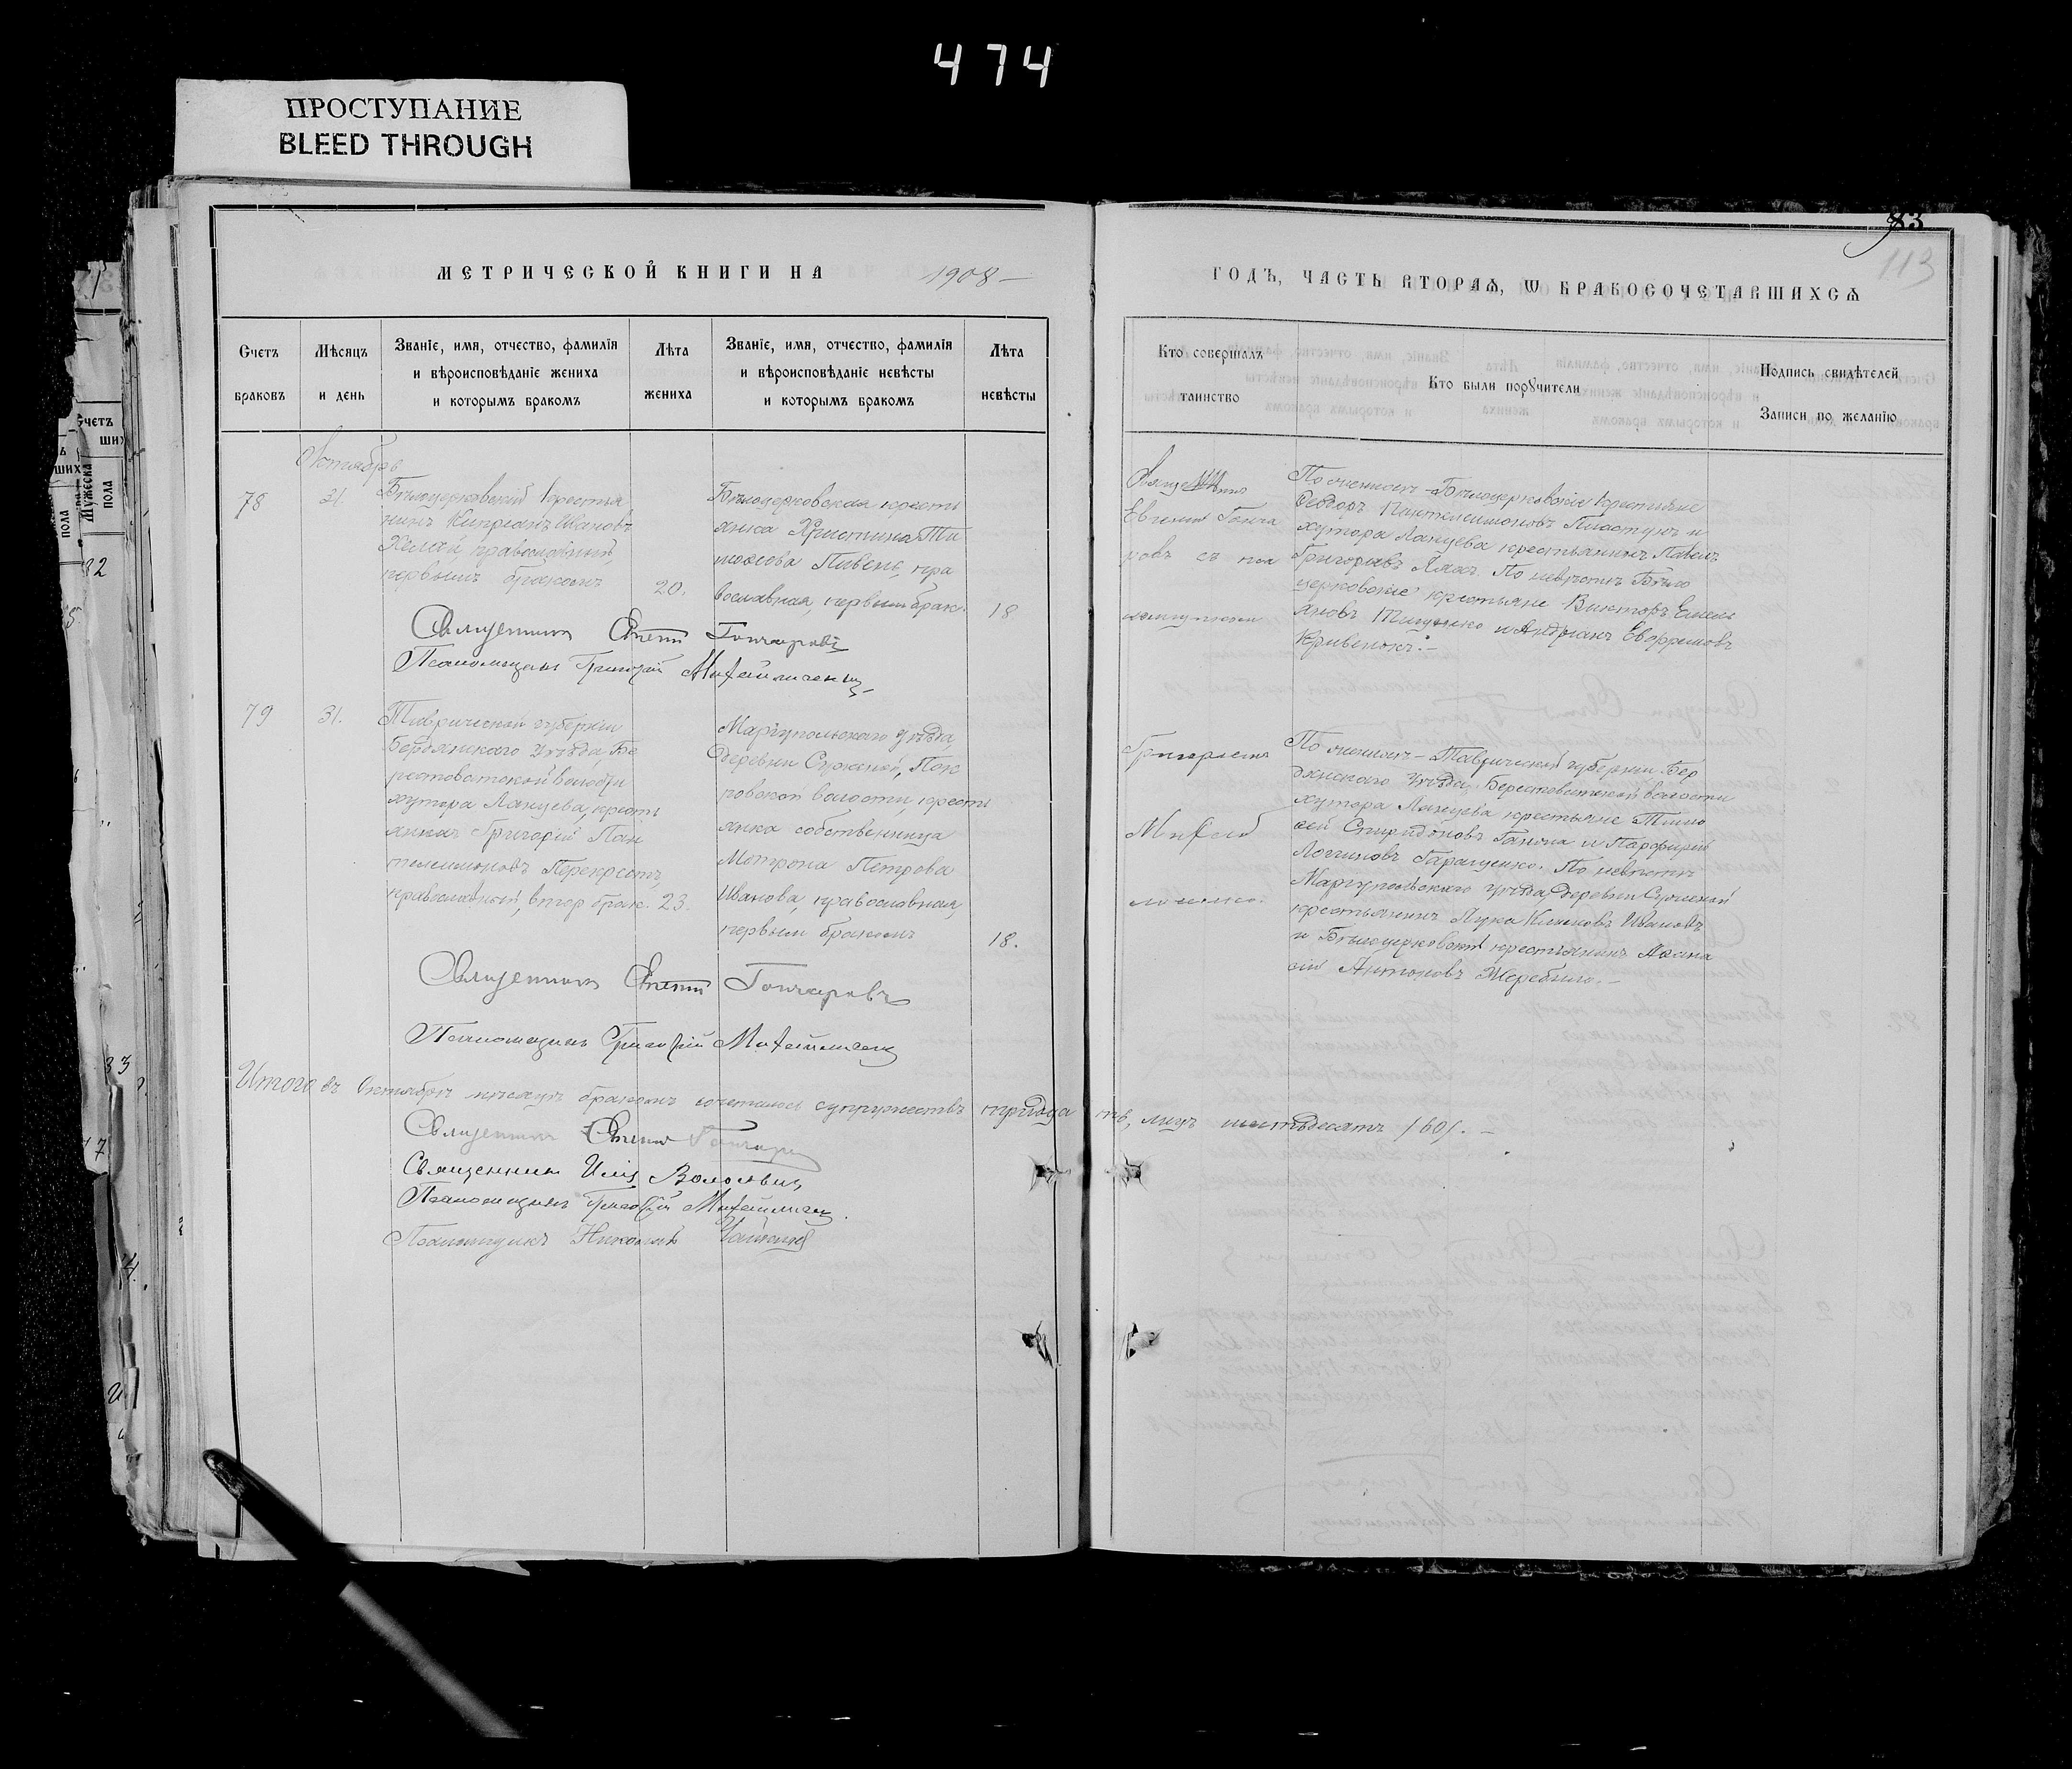 474
ПРОСТУПАНИЕ
BLEED THROUGH
83
113
МЕТРИЧЕСКОЙ КНИГИ НА 1908 –
ГОДЪ, ЧАСТЬ ВТОРАѦ, Ѡ БРАКОСОЧЕТАВШИХСѦ
Счетъ браковъ
Мѣсяцъ и день
Званіе, имя, отчество, фамилія и вѣроисповѣданіе жениха и которымъ бракомъ
Лѣта жениха
Званіе, имя, отчество, фамилія и вѣроисповѣданіе невѣсты и которымъ бракомъ
Лѣта невѣсты
Кто совершалъ таинство
Кто были поручители
Подпись свидѣтелей
Записи по желанію
Октябрь
78
31.
Бѣлоцерковскій крестья
нинъ Кипріанъ Ивановъ
православный,
первымъ бракомъ
20.
Бѣлоцерковская кресть
янка Христина Ти
моѳеева Пивень, пра
вославная, первым брак.
18
Священникъ
Евгеній Гонча
ровъ съ пса
ломщикомъ
По женихѣ – Бѣлоцерковскіе крестьяне
Ѳедоръ Пантелеимоновъ Пластунъ и
хутора Ланцева крестьянинъ Павелъ
Григорьевъ Ляхъ. По невѣстѣ Бѣло
церковскіе крестьяне Викторъ Емель
яновъ Тищенко и Андріанъ Евфремовъ
Кривенокъ. –
Священникъ Евгеній Гончаровъ
Псаломщикъ Григорій Михайличенко
79
31.
Таврической губерніи
Бердянскаго уѣзда, Бе
рестоватской волости
хутора Ланцева, кресть
янинъ Григорій Пан
телеимоновъ Перекрестъ,
православный, втор брак.
23.
Маріупольскаго уѣзда,
деревни Сужиной, Пок
ровской волости, кресть
янка собственница
Мотрона Петрова
Иванова, православная,
первым бракомъ
18.
Григоріемъ
Михай
личенко.
По женихѣ – Таврической губерніи Бер
дянскаго уѣзда, Берестоватской волости
хутора Ланцева крестьяне Тимо
ѳей Спиридоновъ Ганока и Порфирій
Логиновъ Гаращенко. По невѣстѣ
Маріупольскаго уѣзда деревни Сужиной
крестьянинъ Лука Климовъ Ивановъ
и Бѣлоцерковскій крестьянинъ Аѳана
сій Антоновъ Жеребило. –
Священникъ Евгеній Гончаровъ
Псаломщикъ Григорій Михайличенко
Итого въ Октябрѣ мѣсяцѣ бракомъ сочеталось супружествъ тридца ть, лицъ шестьдесятъ /60/. –
Священникъ Евгеній Гончаровъ
Священникъ Илія
Псаломщикъ Григорій Михайличенко.
Псаломщикъ Николай